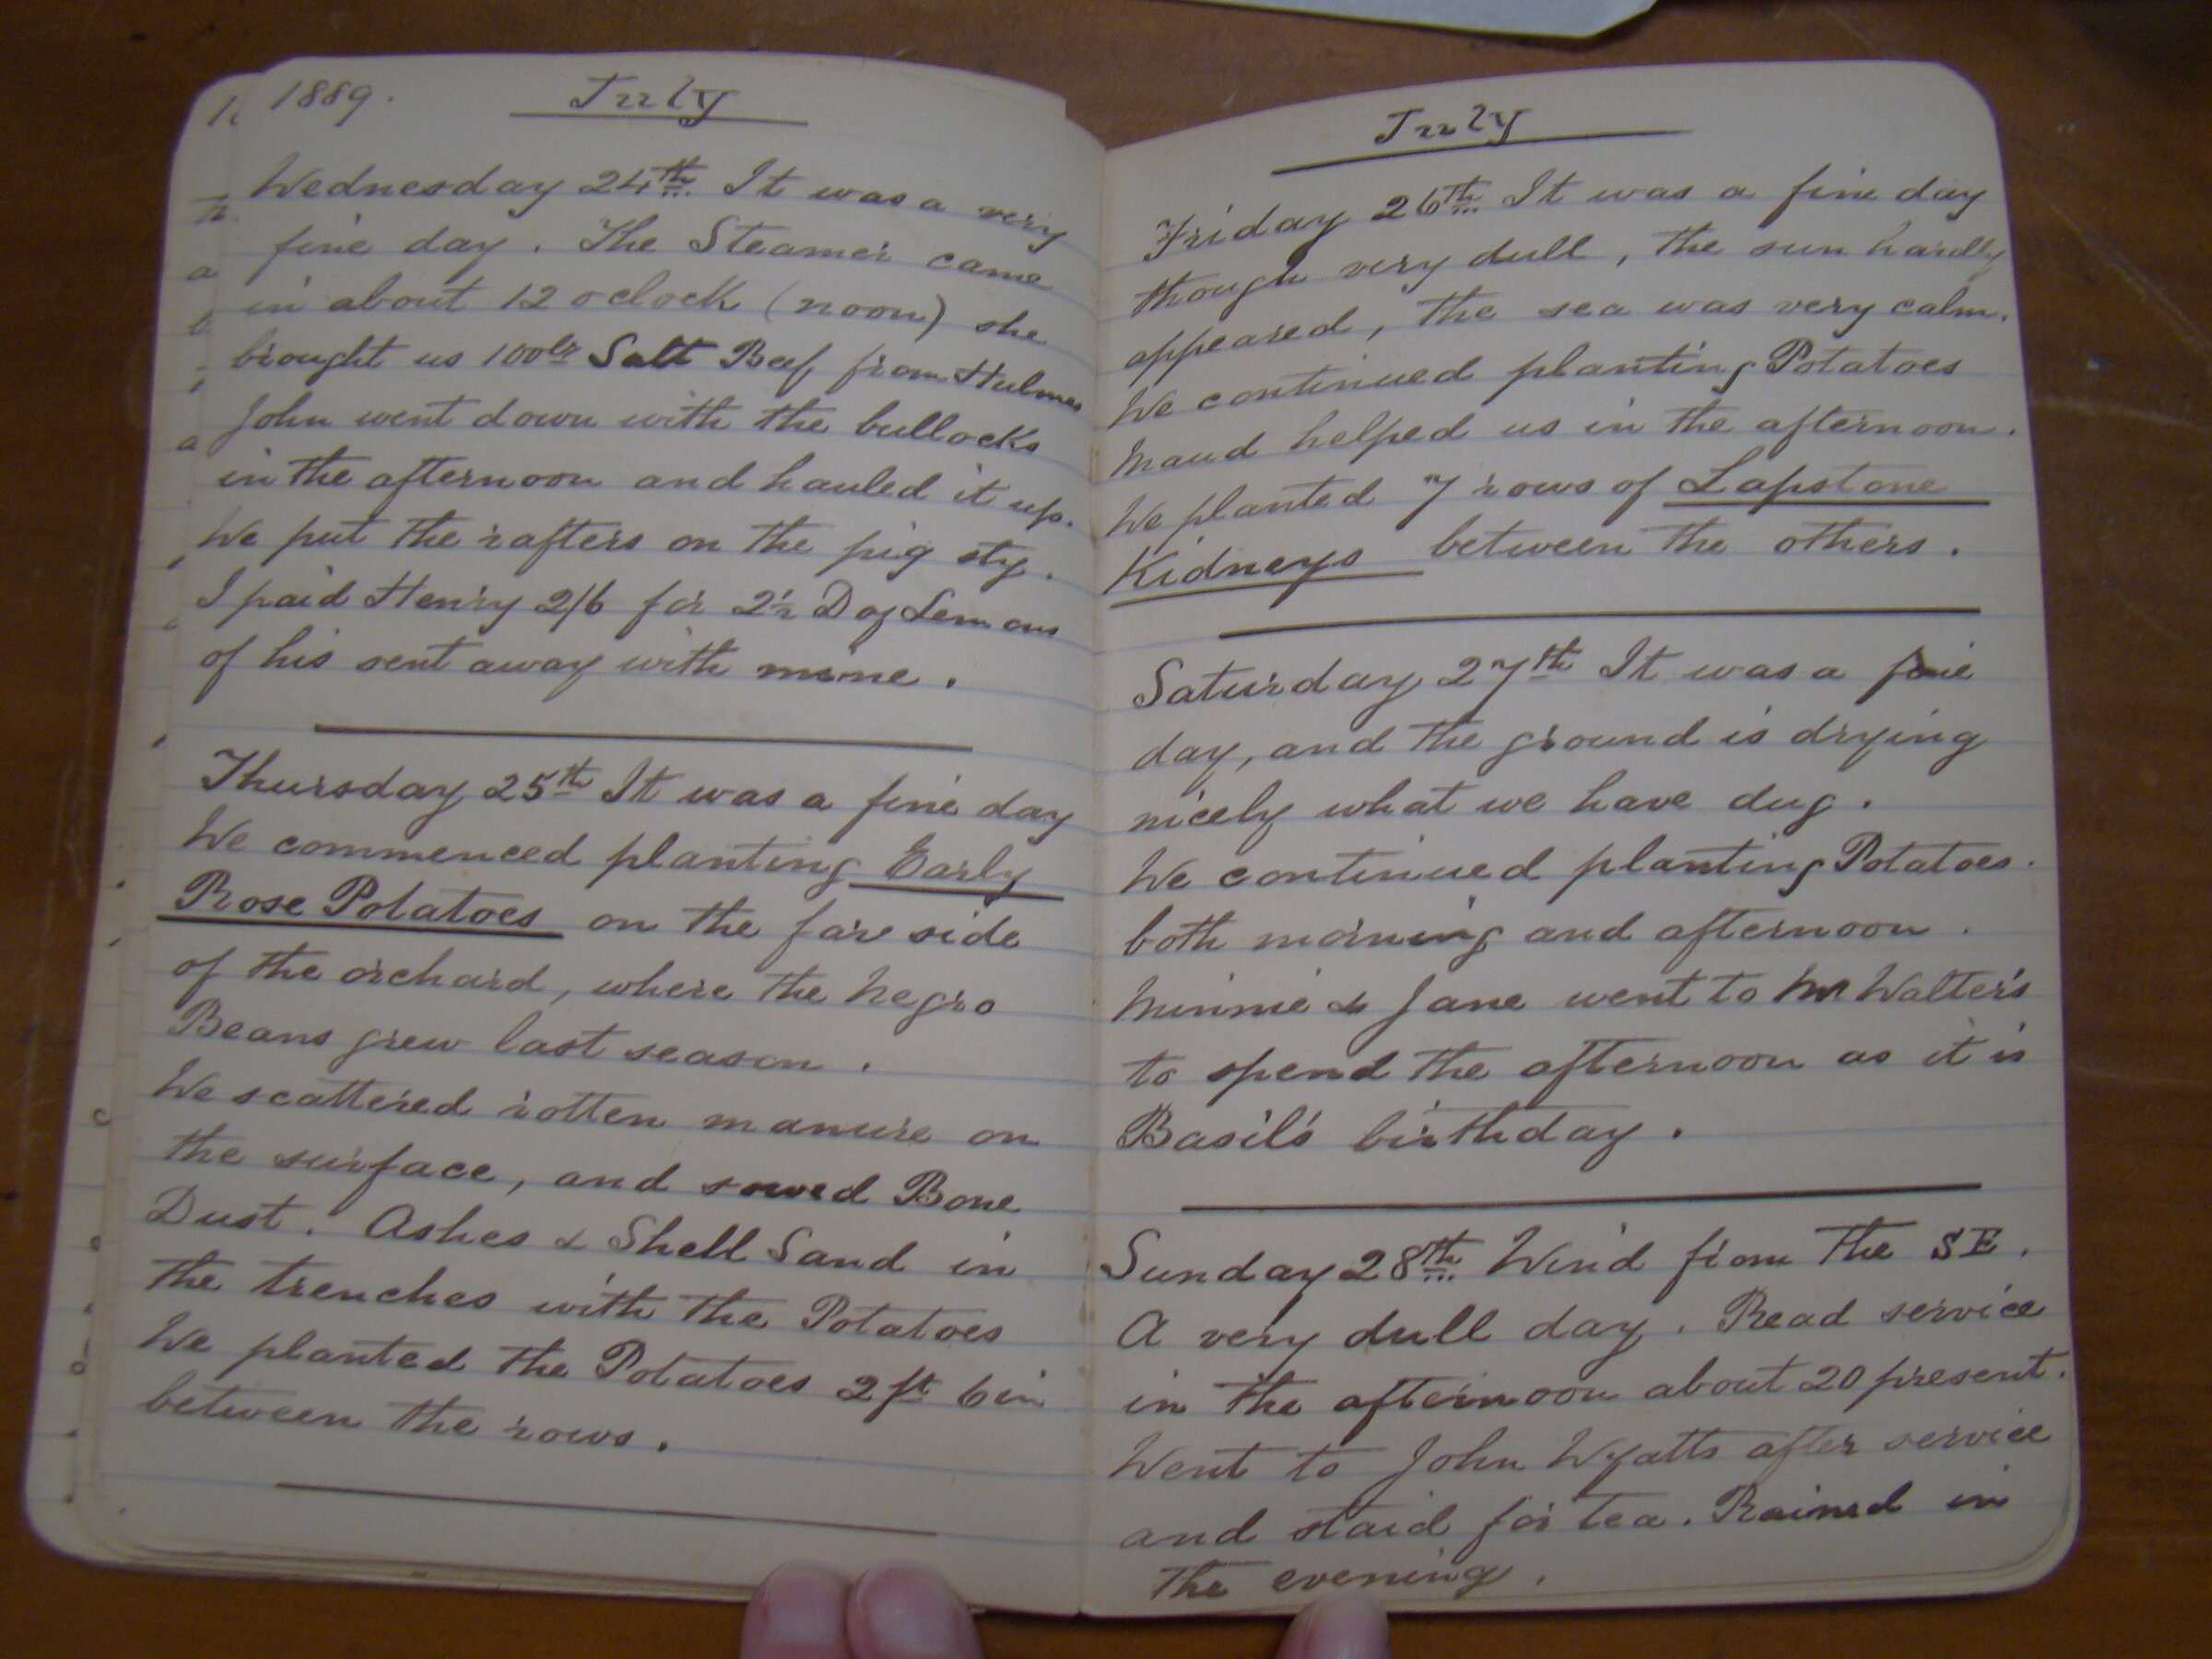 1889.
July
Wednesday 24th It was a very
fine day. The Steamer came
in about 12 oclock (noon) she
brought us 100lbs Salt Beef from Hulmes
John went down with the bullocks
in the afternoon and hauled it up.
We put the rafters on the pig sty.
I paid Henry 2/6 for 2½ Doz Lemons
of his sent away with mine.
Thursday 25th It was a fine day
We commenced planting Early
Rose Potatoes on the fare side
of the orchard, where the Negro
Beans grew last season.
We scattered rotten manure on
the surface, and sowed Bone
Dust. Ashes & Shell Sand in
the trenches with the Potatoes
We planted the Potatoes 2 ft 6 in
between the rows.
July
Friday 26th It was a fine day
though very dull, the sun hardly
appeared, the sea was very calm.
We continued planting Potatoes
Maud helped us in the afternoon.
We planted 7 rows of Lapstone
Kidneys between the others.
Saturday 27th It was a fine
day, and the ground is drying
nicely what we have dug.
We continued planting Potatoes.
both morning and afternoon.
Minnie & Jane went to Mr Walter's
to spend the afternoon as it is
Basil's birthday.
Sunday 28th Wind from the SE.
A very dull day. Read service
in the afternoon about 20 present.
Went to John Wyatts after service
and staid for tea. Rained in
the evening.